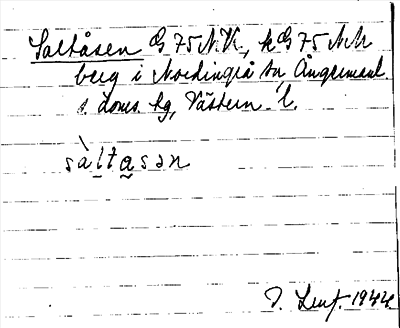 Saltåsen G 75 NV, k G 75 NV
berg i Nordingrå sn, Ångermanl.
s. doms. hg, Västern. l.
sàltasən
1944